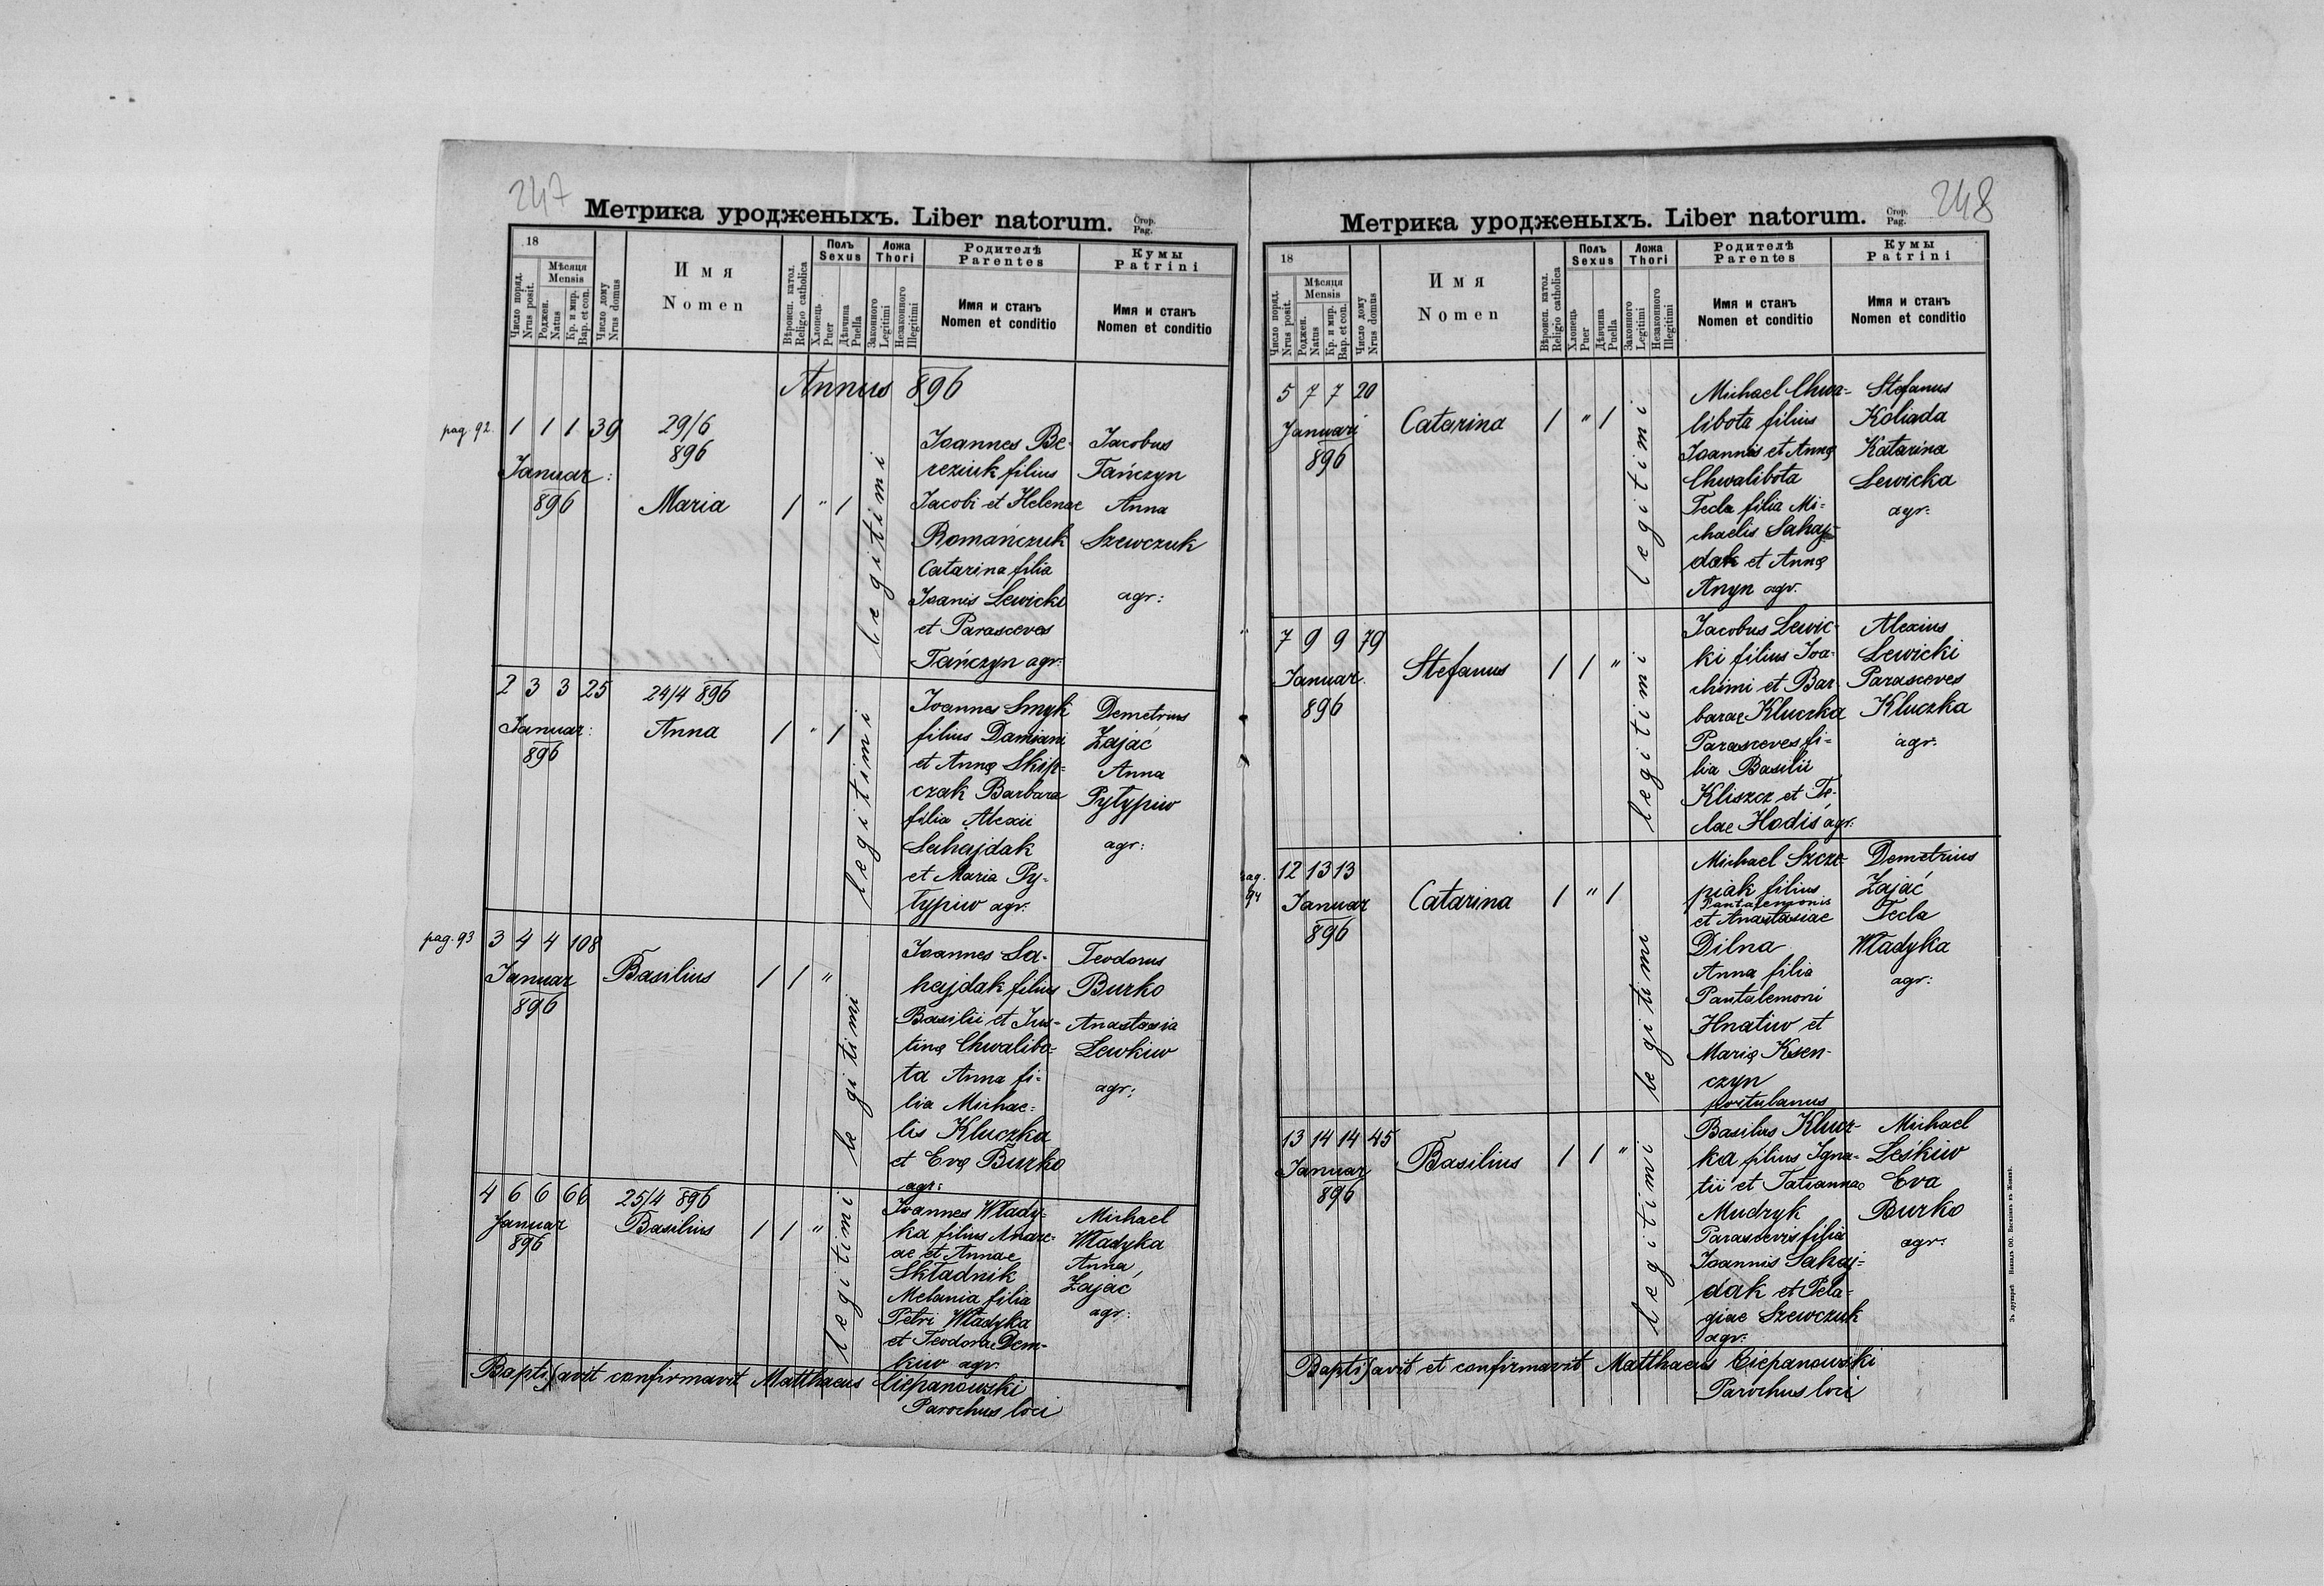 247
Метрика уродженыхъ. Liber natorum. Стор. Pag.
18
Число поряд. Nrus posit.
Мѣсяця Mensis
Роджен. Natus
Кр. и мир. Bap. et con.
Число дому Nrus domus
Имя
Nomen
Вѣроисп. катол. Religio catholica
Полъ Sexus
Хлопець Puer
Дѣвчина Puella
Ложа Thori
Законного Legitimi
Незаконного Illegitimi
Родителѣ
Parentes
Имя и станъ
Nomen et conditio
Кумы
Patrini
Имя и станъ
Nomen et conditio
Annus 896
pag. 92. 1 1 1 39
Januar:
896
29/6
896
Maria / " /
legitimi
Joannes Be-
reziuk filius
Jacobi et Helenae
Romańczuk
Catarina filia
Joanis Lewicki
et Parasceves
Tańczyn agr:
Jacobus
Tańczyn
Anna
Szewczuk
agr:
2 3 3 25
Januar:
896
24/4 896
Anna / " /
legitimi
Joannes Smyk
filius Damiani
et Annę Skip=
czak Barbara
filia Alexii
Sahajdak
et Maria Py-
typiw agr.
Demetrius
Zając
Anna
Pytypiw
agr:
pag. 93 3 4 4 108
Januar
896
Basilius / / "
legitimi
Joannes Sa-
hajdak filius
Basilii et Jus-
tinę Chwalibo=
ta Anna fi=
lia Michae=
lis Kluczka
et Evę Burko
agr:
Teodorus
Burko
Anastasia
Lewkiw
agr:
4 6 6 66
Januar
896
25/4 896
Basilius / / "
legitimi
Joannes Włady-
ka filius Andre=
ae et Annae
Składnik
Melania filia
Petri Władyka
et Teodora Dem-
kiw agr.
Michael
Władyka
Anna
Zając
agr:
Baptisavit confirmavit Matthaeus Ciepanowski
Parochus loci
248
Метрика уродженыхъ. Liber natorum. Стор. Pag.
18
Число поряд. Nrus posit.
Мѣсяця Mensis
Роджен. Natus
Кр. и мир. Bap. et con.
Число дому Nrus domus
Имя
Nomen
Вѣроисп. катол. Religio catholica
Полъ Sexus
Хлопець Puer
Дѣвчина Puella
Ложа Thori
Законного Legitimi
Незаконного Illegitimi
Родителѣ
Parentes
Имя и станъ
Nomen et conditio
Кумы
Patrini
Имя и станъ
Nomen et conditio
5 7 7 20
Januari
896
Catarina / " /
legitimi
Michael Chwa=
libota filius
Joannis et Annę
Chwalibota
Tecla filia Mi=
chaelis Sahaj=
dak et Annę
Anyn agr.
Stefanus
Koliada
Katarina
Lewicka
agr:
7 9 9 79
Januar.
896
Stefanus / / "
legitimi
Jacobus Lewic-
ki filius Joa-
chimi et Bar-
barae Kluczka
Parasceves fi=
lia Basilii
Kliszcz et Te-
clae Hodis agr:
Alexius
Lewicki
Parasceves
Kluczka
agr.
pag. 94 12 13 13
Januar
896
Catarina / " /
legitimi
Michael Szcze-
piak filius
Pantalemonis
et Anastasiae
Dilna
Anna filia
Pantalemoni
Hnatiw et
Marię Ksen-
czyn
postulanus
Demetrius
Zając
Tecla
Władyka
agr:
13 14 14 45
Januar
896
Basilius / / "
legitimi
Basilus Klucz-
ka filius Igna-
tii et Tatiannae
Mudryk
Parascevis filia
Joannis Sahaj=
dak et Pela-
giae Szewczuk
agr:
Michael
Leskiw
Eva
Burko
agr:
Baptisavit et confirmavit Matthaeus Ciepanowski
Parochus loci